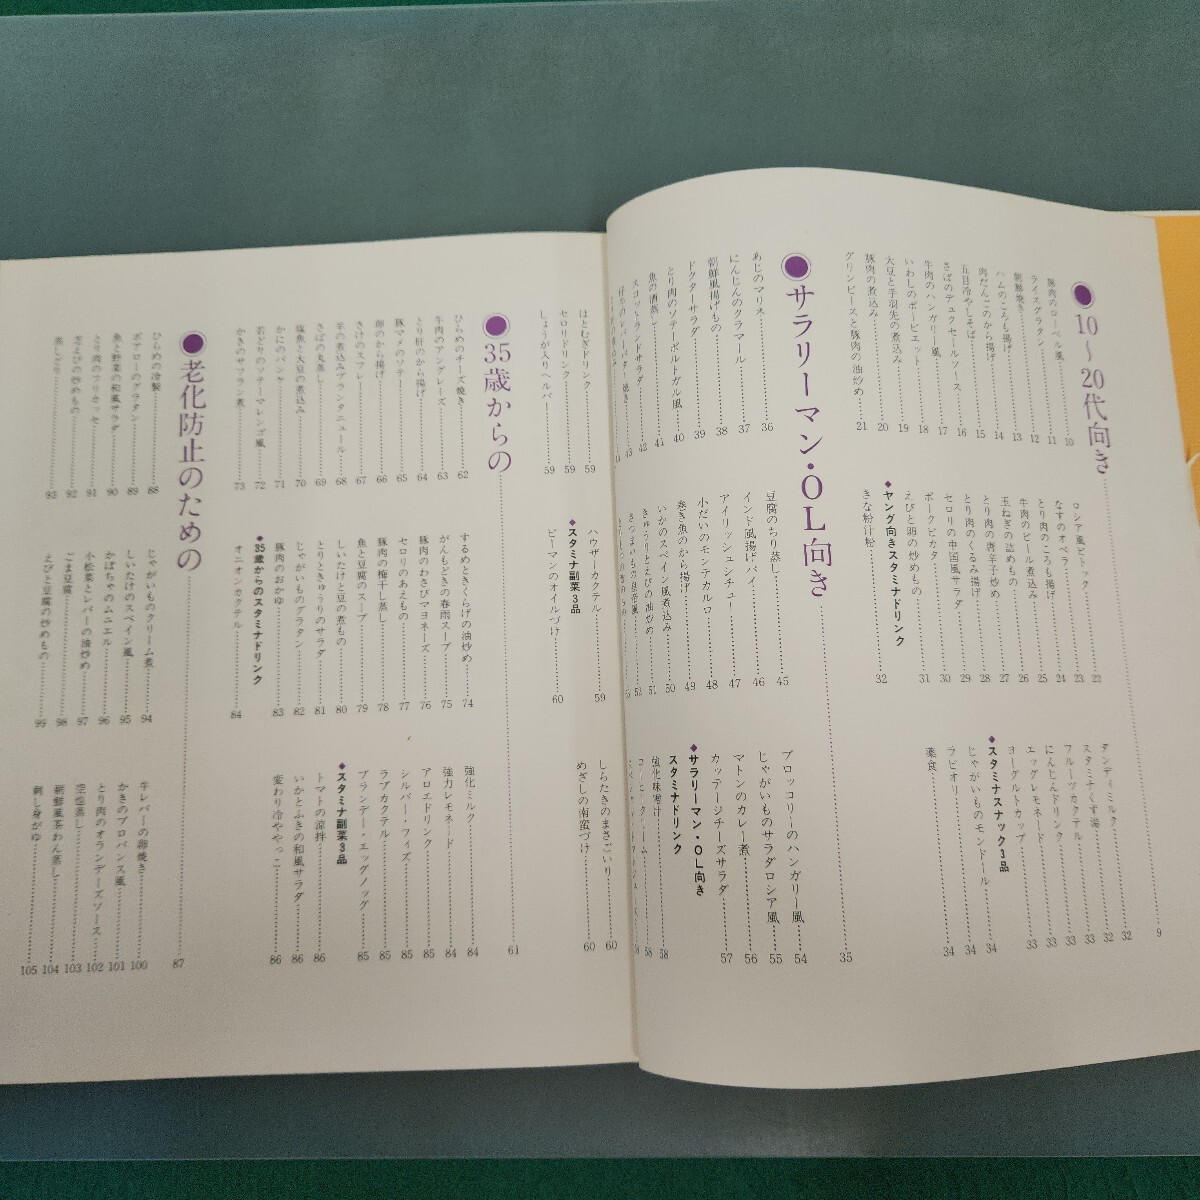 ●10〜20代向き……9
豚肉のローベル風……10
ライスグラタン……11
朝鮮焼き……12
ハムのころも揚げ……13
肉だんごのから揚げ……14
五目冷やしそば……15
さばのデュクセールソース……16
牛肉のハンガリー風……17
いわしのポーピエット……18
大豆と手羽先の煮込み……19
豚肉の煮込み……20
グリンピースと豚肉の油炒め……21
ロシア風ビトック……22
なすのオペラ……23
とり肉のころも揚げ……24
牛肉のビール煮込み……25
玉ねぎの詰めもの……26
とり肉の唐辛子炒め……27
とり肉のくるみ揚げ……28
セロリの中国風サラダ……29
ポークピカタ……30
えびと卵の炒めもの……31
◆ヤング向きスタミナドリンク
きな粉汁粉……32
ダンディミルク……32
スタミナくず湯……32
フルーツカクテル……33
にんじんドリンク……33
エッグレモネード……33
ヨーグルトカップ……33
◆スタミナスナック3品
じゃがいものモンドール……34
ラビオリ……34
薬食……34
●サラリーマン・OL向き……35
あじのマリネ……36
にんじんのクラマール……37
朝鮮風揚げもの……38
ドクターサラダ……39
とり肉のソテーポルトガル風……40
魚の酒蒸し……41
スコットランドサラダ……42
豆腐のちり蒸し……45
インド風揚げパイ……46
アイリッシュシチュー……47
小だいのモンテカルロ……48
巻き魚のから揚げ……49
いかのスペイン風煮込み……50
きゅうりとえびの油炒め……51
ブロッコリーのハンガリー風……54
じゃがいものサラダロシア風……55
マトンのカレー煮……56
カッテージチーズサラダ……57
◆サラリーマン・OL向き
スタミナドリンク
強化味噌汁……58
はとむぎドリンク……59
セロリドリンク……59
しょうが入りヘルパ……59
ハウザーカクテル……59
◆スタミナ副菜3品
ピーマンのオイルづけ……60
しらたきのまさごいり……60
めざしの南蛮づけ……60
●35歳からの……61
ひらめのチーズ焼き……62
牛肉のアングレーズ……63
とり肝のから揚げ……64
豚マメのソテー……65
卵のから揚げ……66
さけのスフレー……67
羊の煮込みプランタニュール……68
さばの丸蒸し……69
塩魚と大豆の煮込み……70
かにのパンケ……71
若どりのソテーマレンゴ風……72
かきのサフラン煮……73
するめときくらげの油炒め……74
がんもどきの春雨スープ……75
豚肉のわさびマヨネーズ……76
セロリのあえもの……77
豚肉の梅干し蒸し……78
魚と豆腐のスープ……79
しいたけと豆の煮もの……80
とりときゅうりのサラダ……81
じゃがいものグラタン……82
豚肉のおかゆ……83
◆35歳からのスタミナドリンク
オニオンカクテル……84
強化ミルク……84
強力レモネード……84
アロエドリンク……85
シルバーフィズ……85
ラブカクテル……85
ブランデー・エッグノッグ……85
◆スタミナ副菜3品
トマトの涼拌……86
いかとふきの和風サラダ……86
変わり冷ややっこ……86
●老化防止のための……87
ひらめの冷製……88
ポアローのグラタン……89
魚と野菜の和風サラダ……90
とり肉のフリカッセ……91
芝えびの炒めもの……92
蒸しどり……93
じゃがいものクリーム煮……94
しいたけのスペイン風……95
かぼちゃのムニエル……96
小松菜とレバーの油炒め……97
ごま豆腐……98
えびと豆腐の炒めもの……99
牛レバーの卵焼き……100
かきのプロバンス風……101
とり肉のオランデーズソース……102
空也蒸し……103
朝鮮風茶わん蒸し……104
刺し身がゆ……105